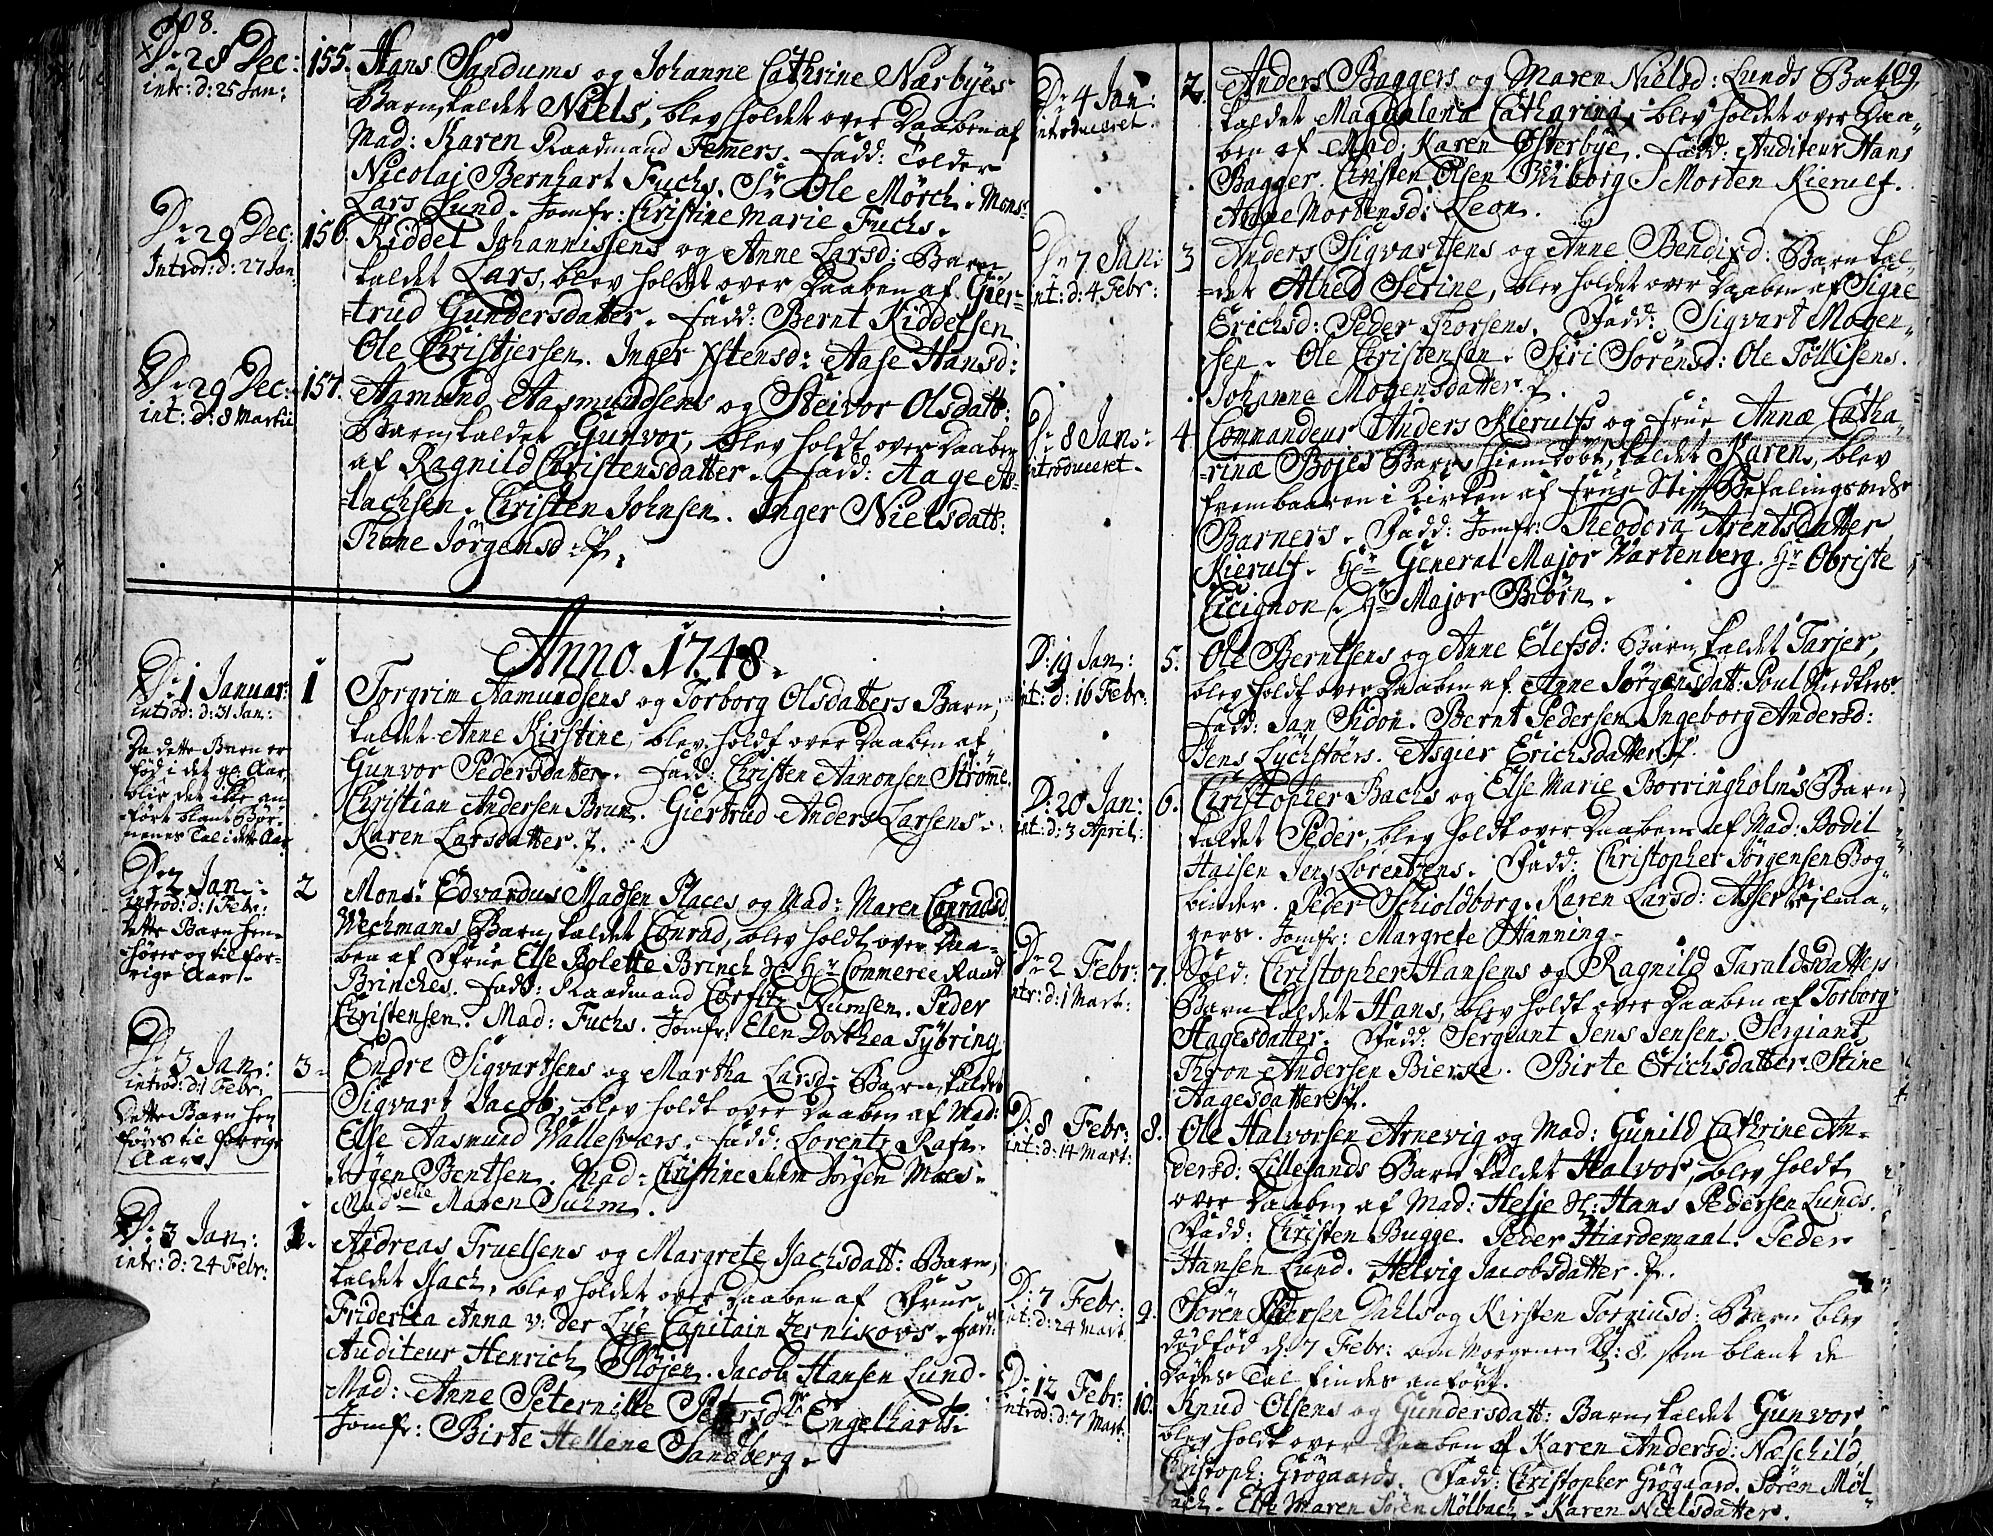 108.
D: 28 Dec:
intr: d: 25 Jan:
155. Hans Sandums og Johanne Cathrine Nærbyes
Barn, kaldet Niels, blev holdet over Daaben af
Mad: Karen Raadmand Femers. Fadd: Tolder
Nicolaj Bernhart Fuchs. Sr Ole Mörch. Mons:
Lars Lund. Jomfr: Christine Marie Fuchs.
D: 29 Dec:
Introd: d: 27 Jan
156. Kiddel Johannissens og Anne Larsd: Barn
kaldet Lars, blev holdet over Daaben af Gier-
-trud Gundersdatter. Fadd: Bernt Kiddelsen
Ole Christjersen. Inger Xstensd: Aase Hansd:
D: 29 Dec:
int: d: 8 Martii
157. Aamund Aasmundsens og Steivor Olsdatt:
Barn, kaldet Gunvor, blev holdt over Daaben
af Ragnild Christensdatter. Fadd: Aage As-
-lachsen. Christen Johnsen. Inger Nielsdatt:
Thone Jörgensd:
Anno. 1748.
D: 1 Januar:
introd: d: 31 Jan:
Da dette Barn er
föd i det gl: Aar,
blir det ikke an-
fört blant Bör-
nenes Tal i dette Aar
1 Torgrim Aamundsens og Torborg Olsdatters Barn,
kaldet Anne Kirstine, blev holdt over Daaben af
Gunvor Pedersdatter. Fadd: Christen Aanonsen Strömme.
Christian Andersen Brun. Giertrud Anders Larsens.
Karen Larsdatter.
D: 2 Jan:
introd: d: 1 Febr:
Dette Barn hen-
-hörer og til for-
rige Aar.
2 Mons: Edvardus Madsen Places og Mad: Maren Conradsd
Wechmans Barn, kaldet Conrad, blev holdt over Daa-
ben af Frue Else Bolette Brinch Hr Commerce Raad
Brinches. Fadd: Raadmand Corfitz Rumsen. Peder
Christensen. Mad: Fuchs. Jomfr: Elen Dorthea Tybring
D: 3 Jan:
introd: d: 1 Febr.
Dette Barn hen
föres til forrige
Aar
3 Endre Sigvartsens og Martha Larsd: Barn, kaldet
Sigvart Jacob, blev holdt over Daaben af Mad:
Else Aasmund Wallesværs. Fadd: Lorentz Rafn.
Jörgen Bentsen. Mad: Christine Suhm Jörgen Maes.
Madselle Maren Suhm.
D: 3 Jan:
intr: d: 24 Febr:
1. Andreas Truelsens og Margrete Isachsdatt: Barn,
kaldet Isach, blev holdet over Daaben af Frue
Friderica Anna v: der Lye Capitain Zernikovs. Fadd:
Auditeur Henrich Stöjer. Jacob Hansen Lund.
Mad: Anne Peternille Petersd: Engelharts.
Jomfr: Birte Hellene Sandberg.
109
D: 4 Jan:
introduceret.
2. Anders Baggers og Maren Nielsd: Lunds Barn
kaldet Magdalena Catharina, blev holdet over Daa-
ben af Mad: Karen Österbye. Fadd: Auditeur Hans
Bagger. Christen Olsen Wiborg. Morten Kierulf.
Anne Mortensd: Leon.
D: 7 Jan:
int: d: 4 Febr:
3 Anders Sigvartsens og Anne Bendixd: Barn kal-
-det Athed Serine, blev holdet over Daaben af Signe
Erichsd: Peder Thorsens. Fadd: Sigvart Mogen-
sen. Ole Christensen. Siri Sörensd: Ole Tölkisens.
Johanne Mogensdatter.
D: 8 Jan:
introduceret.
4 Commandeur Anders Kierulfs og Frue Annæ Catha-
-rinæ Bojes Barn hiemdöbt, kaldet Karen, blev
frembaaren i Kirken af Frue Stift Befalingsmds
Barners. Fadd: Jomfr: Theodora Arentsdatter
Kierulf. Hr General Major Wartenberg. Hr Obriste
Cicignon. Hr Major Biörn.
D: 19 Jan:
int: d: 16 Febr:
5. Ole Berntsens og Anne Elefsd: Barn, kaldet Tarjer,
blev holdt over Daaben af Anne Jörgensdatt: Poul Riedkers.
Fadd: Jan Sidon. Bernt Pedersen. Ingeborg Andersd:
Jens Lychstöers. Asgier Erichsdatter.
D: 20 Jan:
int: d: 3 April:
6. Christopher Bachs og Else Marie Borringholms Barn
kaldet Peder, blev holdt over Daaben af Mad: Bodil
Haisen Jens Lorentzens. Fadd: Christopher Jörgensen Bog-
binder. Peder Schioldborg. Karen Larsd: Asser Seilma-
gers. Jomfr: Margrete Hanning.
D: 2 Febr:
intr: d: 1 Mart:
7. Sold: Christopher Hansens og Ragnild Taraldsdatters
Barn kaldet Hans, blev holdt over Daaben af Torborg
Aagesdatter. Fadd: Sergeant Jens Jensen. Sergiant
Thron Andersen Bierke. Birte Erichsdatter. Stine
Aagesdatter.
D: 8 Febr:
int: d: 14 Mart:
8. Ole Halvorsen Arnevig og Mad: Gunild Cathrine An-
dersd: Lillesands Barn kaldet Halvor, blev holdt
over Daaben af Mad: Helje Sl: Hans Pedersen Lunds.
Fadd: Christen Bugge. Peder Hiardemaal. Peder
Hansen Lund. Helvig Jacobsdatter.
D: 7 Febr:
int: d: 24 Mart
9. Sören Pedersen Dahls og Kirsten Torgiusd: Barn blev
dödföd d: 7 Febr: om Morgenen Kl: 8. som blant de
Dödes Tal findes anfört.
D: 12 Febr:
introd: d: 7 Mart.
10. Knud Olsens og Gundersdatt: Barn, kaldet Gunvor,
blev holdt over Daaben af Karen Andersd: Næschild
Christoph: Grögaards. Fadd: Christopher Grögaard. Sören Möl-
-bach. Else Maren Sören Mölbach. Karen Nielsdatter.